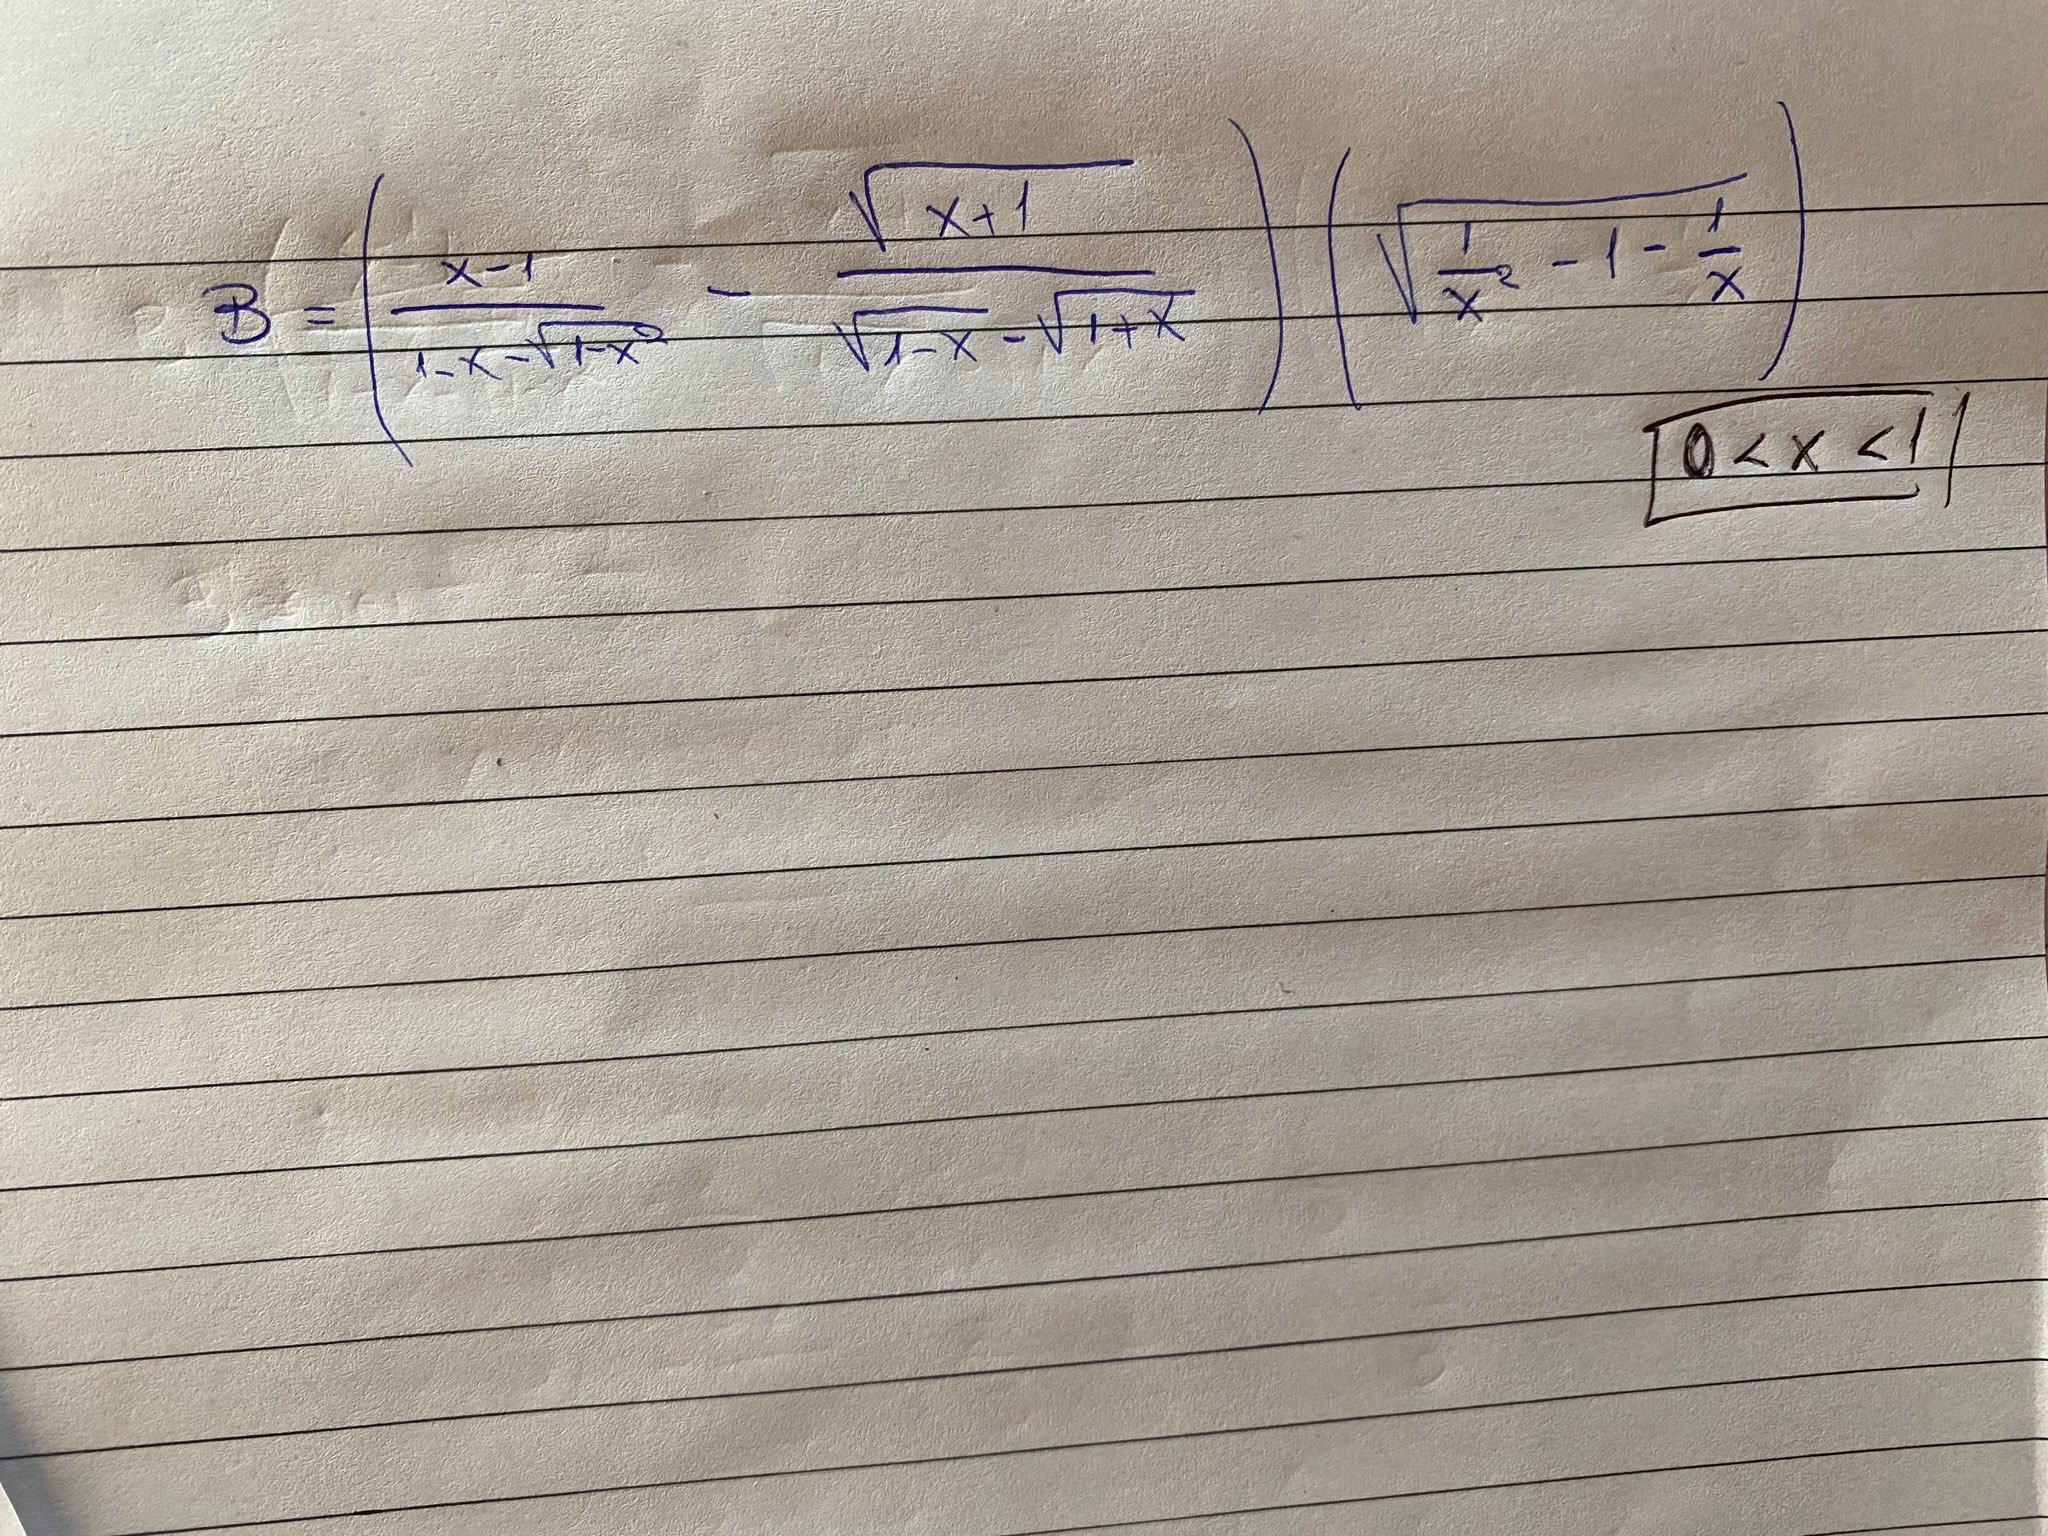 B = ( (x-1)/(1-x-√(1-x²)) - √(x+1)/(√(1-x) - √(1+x)) ) ( √(1/x² - 1 - 1/x) )
0 < x < 1